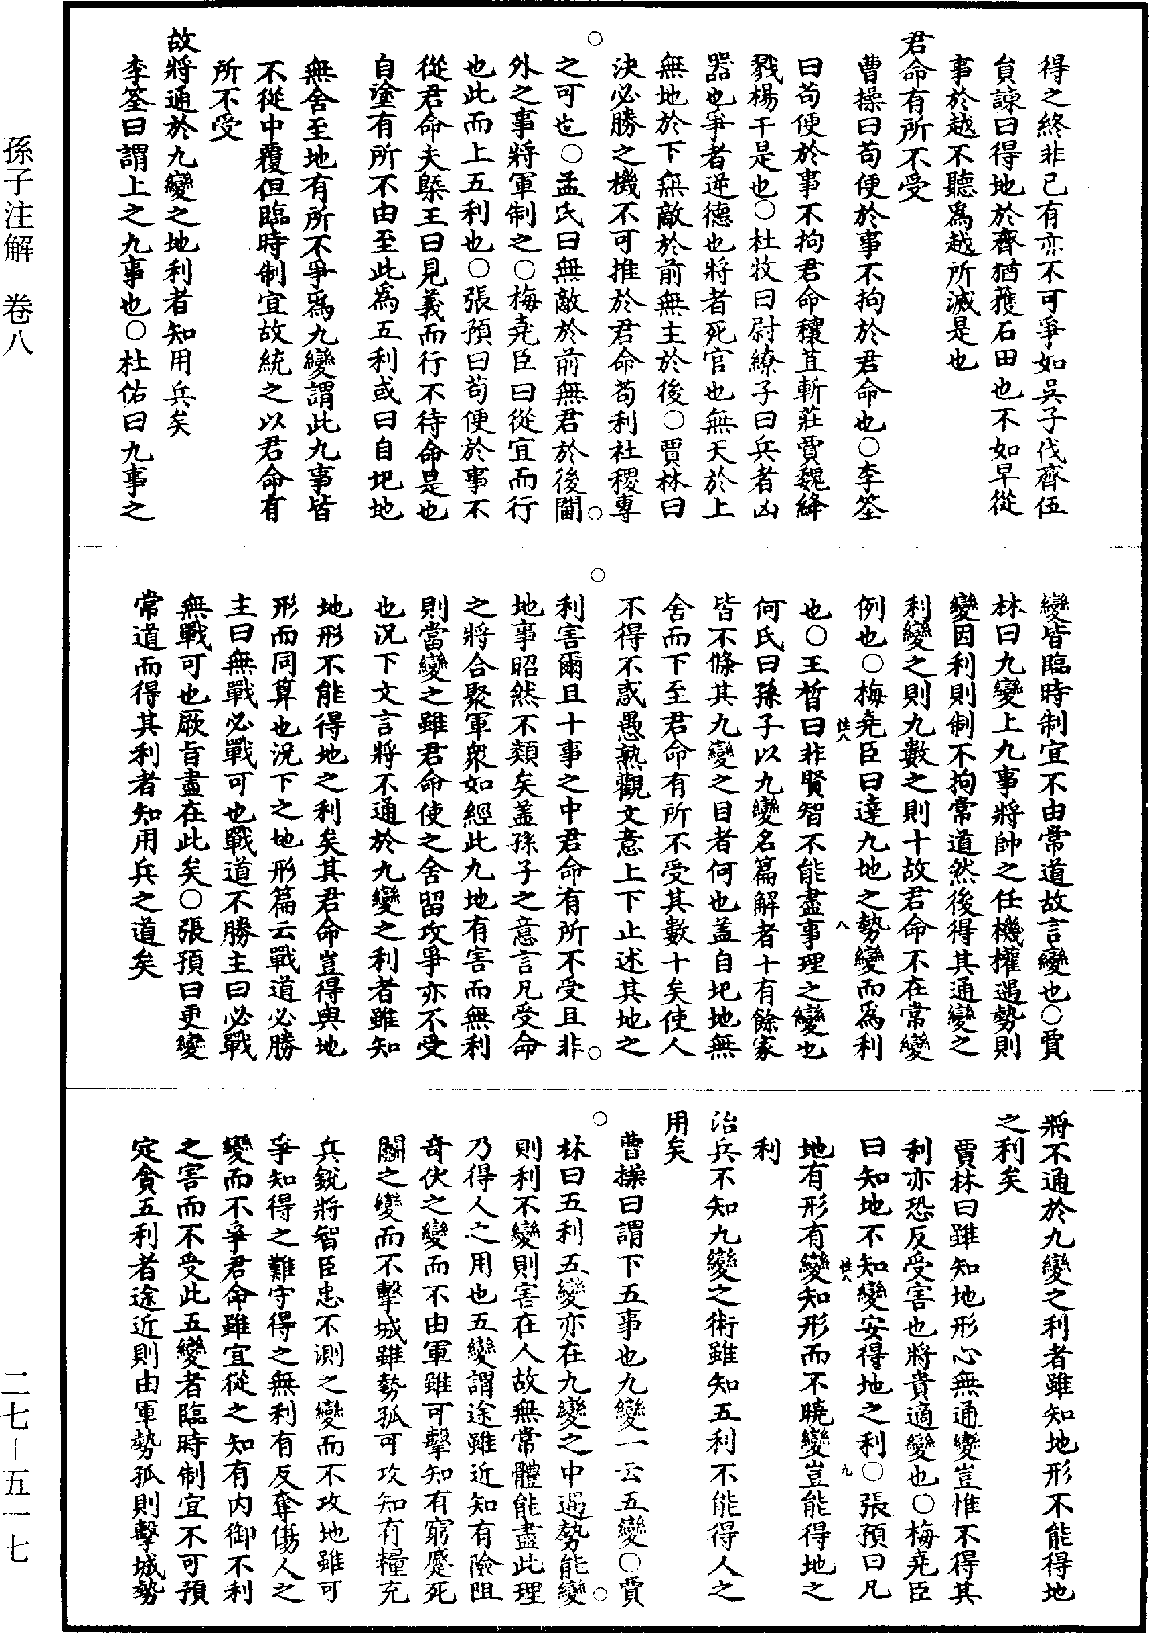 得之終非己有亦不可爭如吳子伐齊伍
員諫曰得地於齊猶獲石田也不如早從
事於越不聽爲越所滅是也
君命有所不受
曹操曰苟便於事不拘於君命也○李筌
曰苟便於事不拘君命穰苴斬莊賈魏絳
戮楊干是也○杜牧曰尉繚子曰兵者凶
器也爭者逆德也將者死官也無天於上
無地於下無敵於前無主於後○賈林曰
決必勝之機不可推於君命苟利社稷專
之可也○孟氏曰無敵於前無君於後閫
外之事將軍制之○梅堯臣曰從宜而行
也此而上五利也○張預曰苟便於事不
從君命夫槩王曰見義而行不待命是也
自塗有所不由至此爲五利或曰自圮地
無舍至地有所不爭爲九變謂此九事皆
不從中覆但臨時制宜故統之以君命有
所不受
故將通於九變之地利者知用兵矣
李筌曰謂上之九事也○杜佑曰九事之
變皆臨時制宜不由常道故言變也○賈
林曰九變上九事將帥之任機權遇勢則
變因利則制不拘常道然後得其通變之
利變之則九數之則十故君命不在常變
例也○梅堯臣曰達九地之勢變而爲利
也○王晳曰非賢智不能盡事理之變也
何氏曰孫子以九變名篇解者十有餘家
皆不條其九變之目者何也蓋自圮地無
舍而下至君命有所不受其數十矣使人
不得不惑愚熟觀文意上下止述其地之
利害爾且十事之中君命有所不受且非
地事昭然不類矣蓋孫子之意言凡受命
之將合聚軍衆如經此九地有害而無利
則當變之雖君命使之舍留攻爭亦不受
也況下文言將不通於九變之利者雖知
地形不能得地之利矣其君命豈得與地
形而同算也況下之地形篇云戰道必勝
主曰無戰必戰可也戰道不勝主曰必戰
無戰可也厥旨盡在此矣○張預曰更變
常道而得其利者知用兵之道矣
將不通於九變之利者雖知地形不能得地
之利矣
賈林曰雖知地形心無通變豈惟不得其
利亦恐反受害也將貴適變也○梅堯臣
曰知地不知變安得地之利○張預曰凡
地有形有變知形而不曉變豈能得地之
利
治兵不知九變之術雖知五利不能得人之
用矣
曹操曰謂下五事也九變一云五變○賈
林曰五利五變亦在九變之中遇勢能變
則利不變則害在人故無常體能盡此理
乃得人之用也五變謂途雖近知有險阻
奇伏之變而不由軍雖可擊知有窮蹙死
鬬之變而不擊城雖勢孤可攻知有糧充
兵銳將智臣忠不測之變而不攻地雖可
爭知得之難守得之無利有反奪傷人之
變而不爭君命雖宜從之知有內御不利
之害而不受此五變者臨時制宜不可預
定貪五利者途近則由軍勢孤則擊城勢
孫子注解 卷八
二七—五一七